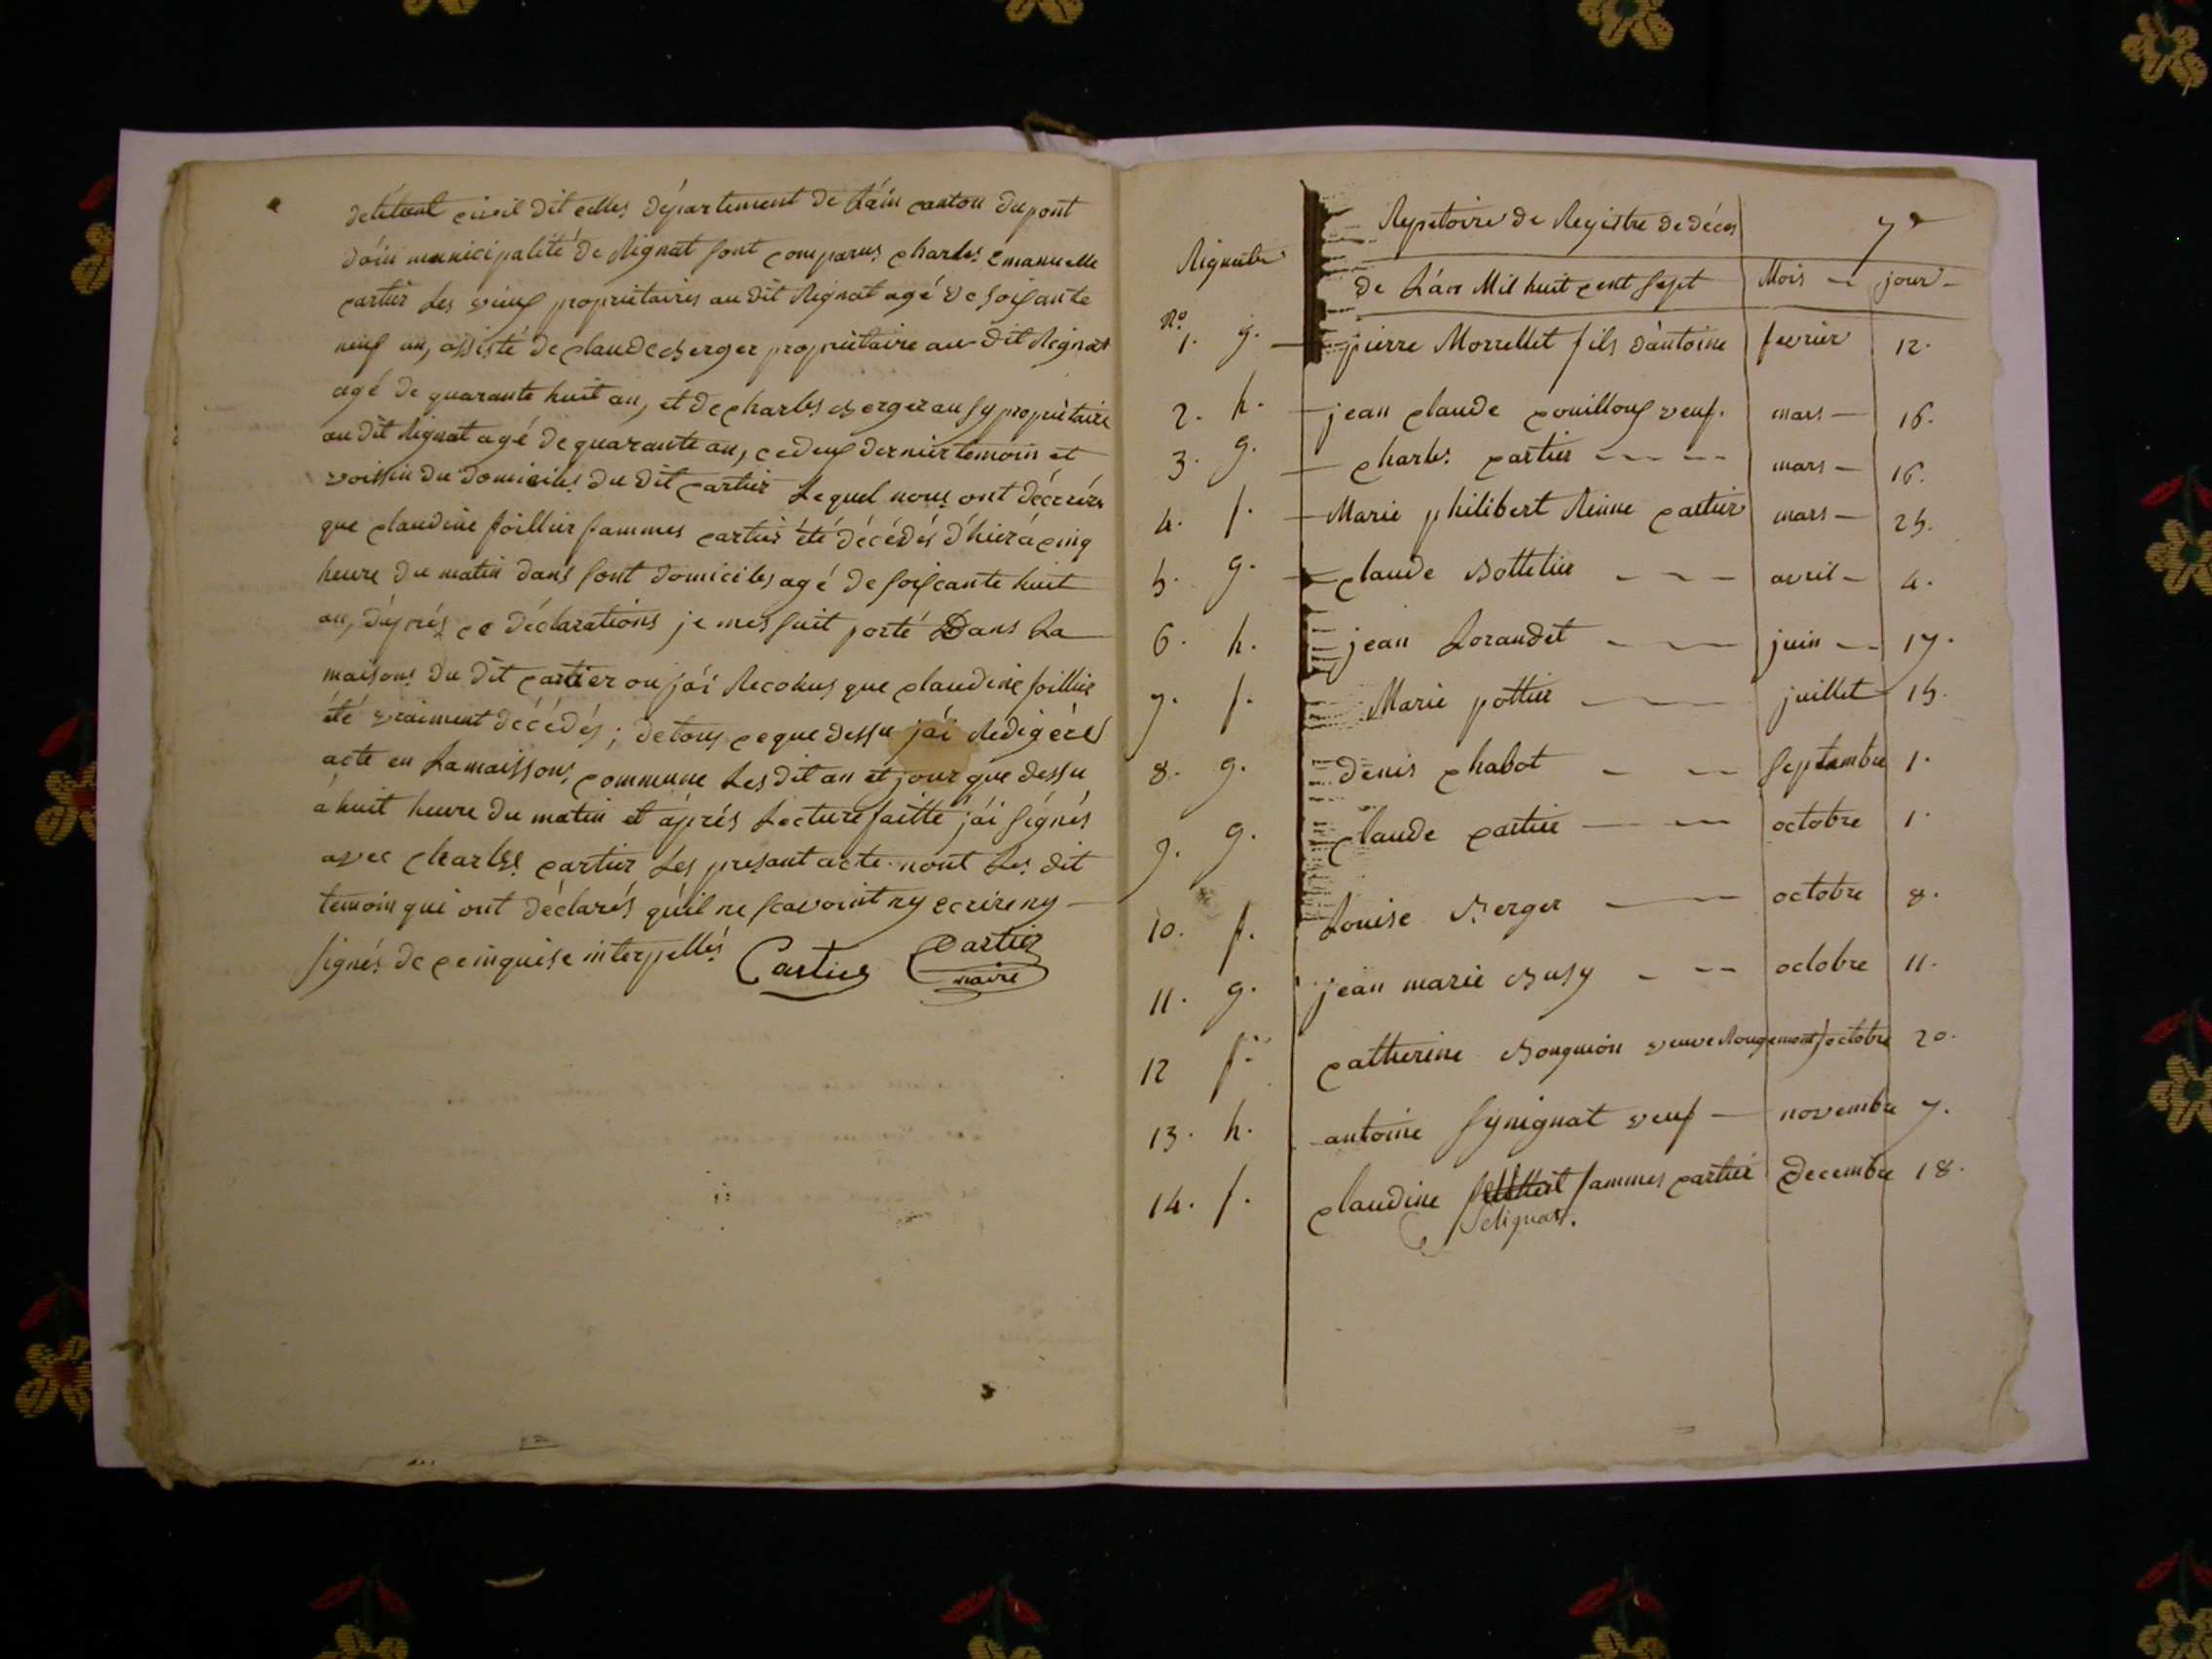 civil dit celles département de Láin canton du pont
dáin municipalité de Rignat sont comparus charles Emanuelle
cartier Les vieux propriétaires au dit Rignat agé de soisante
neuf an, assisté de claude Berger propriétaire au dit Rignat
agé de quarante huit an, et de charles Berger ausy propriètaire
au dit Rignat agé de quarante an, ce deux dernier temoin et
voissin du domiciles du dit cartier Lequel nous ont
que claudine foillier fammes cartier été décédés d'hiér á cinq
heure du matin dans sont domiciles agé de soiscante huit
an, dáprés ce déclarations je mes suit porté Dans La
maisons du dit cartier ou jái Recokus que claudine foillier
été vraiment décédés; de tous ce que dessu jái Rédigér
acte en La maissons, commune Les dit an et jour que dessu
á huit heure du matin et áprés Lecture faitte jái signés
avec charles cartier Les presant acte nont Les dit
temoin qui ont déclarés quíl ne scavoint ny ecrire ny
signés de ce inquise interpellés Cartier Cartier
maire
Repetoire de Registre de déces 7e
Rignat
de Lán Mil huit cent sept Mois jour
No
1. g. pierre Morellet fils dántoine fevrier 12.
2. h. jean claude couilloux veuf. mars 16.
3. g. charles cartier mars 16.
4. f. Marie philibert Reinne cartier mars 25.
5. g. claude Bottelier avril 4.
6. h. jean Lorandet juin 17.
7. f. Marie pottier juillet 15.
8. g. denis chabot septembre 1.
9. g. claude cartier octobre 1.
10. f. Louise Berger octobre 8.
11. g. jean marie Busy octobre 11.
12 f. catherine Bongnion veuve Rougemont octobre 20.
13. h. antoine synignat veuf novembre 7.
14. f. claudine fammes cartier decembre 18.